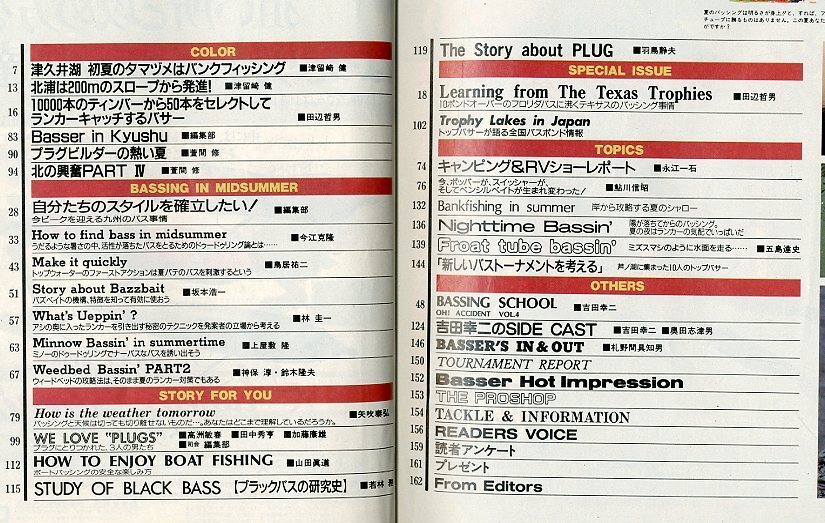 COLOR
7 津久井湖 初夏のタマヅメはバンクフィッシング ■津留崎 健
13 北浦は200mのスロープから発進! ■津留崎 健
16 10000本のティンバーから50本をセレクトして
ランカーキャッチするバサー ■田辺哲男
83 Basser in Kyushu ■編集部
90 プラグビルダーの熱い夏 ■萱間 修
94 北の興奮PART Ⅳ ■萱間 修
BASSING IN MIDSUMMER
28 自分たちのスタイルを確立したい! ■編集部
今ピークを迎える九州のバス事情
33 How to find bass in midsummer ■今江克隆
うだるような暑さの中、活性が落ちたバスをとるためのドゥードゥリング論とは……
43 Make it quickly ■鳥居祐二
トップウォーターのファーストアクションは夏バテのバスを刺激するという
51 Story about Bazzbait ■坂本浩一
バズベイトの機構、特徴を知って有効に使おう
57 What's Ueppin' ? ■林 圭一
アシの奥に入ったランカーを引き出す秘密のテクニックを発案者の立場から考える
63 Minnow Bassin' in summertime ■上屋敷 隆
ミノーのドゥードゥリングでナーバスなバスを誘い出そう
67 Weedbed Bassin' PART2 ■神保 淳・鈴木隆夫
ウィードベッドの攻略法は、そのまま夏のランカー対策でもある
STORY FOR YOU
79 How is the weather tomorrow ■矢吹泰弘
バッシングと天候は切っても切り離せないものだ…。あなたはどこまで理解しているだろうか。
99 WE LOVE "PLUGS" ■高洲敏春 ■田中秀亨 ■加藤廣雄
プラグにとりつかれた、3人の男たち ■司会 編集部
112 HOW TO ENJOY BOAT FISHING ■山田眞道
ボートバッシングの安全な楽しみ方
115 STUDY OF BLACK BASS 【ブラックバスの研究史】 ■若林
夏のバッシングは明るさが身上
119 The Story about PLUG ■羽鳥静夫
SPECIAL ISSUE
18 Learning from The Texas Trophies ■田辺哲男
10ポンドオーバーのフロリダバスに沸くテキサスのバッシング事情
102 Trophy Lakes in Japan
トップバサーが語る全国バスポンド情報
TOPICS
74 キャンピング&RVショーレポート ■永江一石
76 今、ポッパーが、スイッシャーが、
そしてペンシルベイトが生まれ変わった! ■鮎川信昭
132 Bankfishing in summer 岸から攻略する夏のシャロー
136 Nighttime Bassin' 陽が落ちてからのバッシング。
夏の夜はランカーの気配でいっぱいだ
139 Froat tube bassin' ミズスマシのように水面を走る…… ■五島達史
144 「新しいバストーナメントを考える」 芦ノ湖に集まった10人のトップバサー
OTHERS
48 BASSING SCHOOL ■吉田幸二
OH! ACCIDENT VOL.4
124 吉田幸二のSIDE CAST ■吉田幸二 ■奥田志津男
146 BASSER'S IN & OUT ■札野間具知男
150 TOURNAMENT REPORT
152 Basser Hot Impression
153 THE PROSHOP
154 TACKLE & INFORMATION
156 READERS VOICE
159 読者アンケート
161 プレゼント
162 From Editors